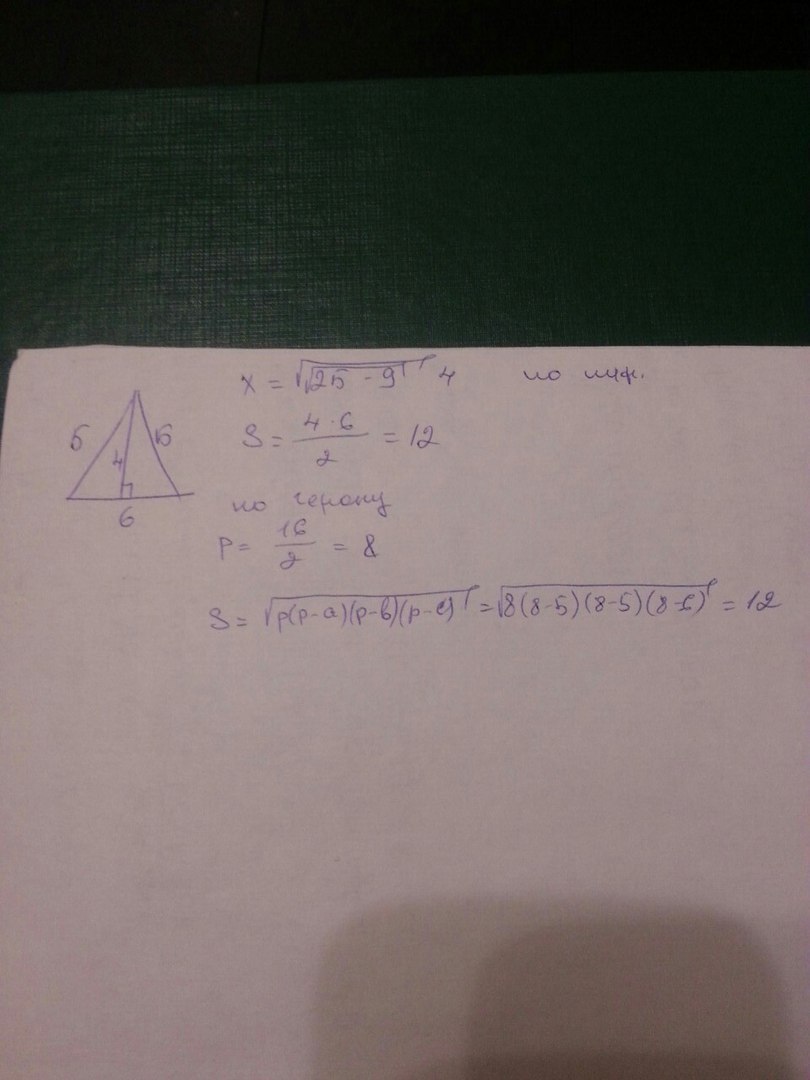 x = √√25 - 9 4 по пиф.
S = 4 · 6 / 2 = 12
5 5 4
6
по герону
p = 16 / 2 = 8
S = √p(p-a)(p-b)(p-c) = √8(8-5)(8-5)(8-6) = 12